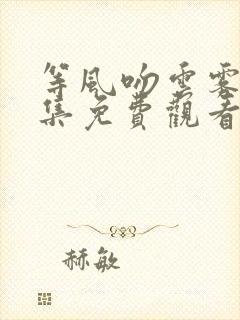 等風吻雲雾
集免費觀看
赫敏